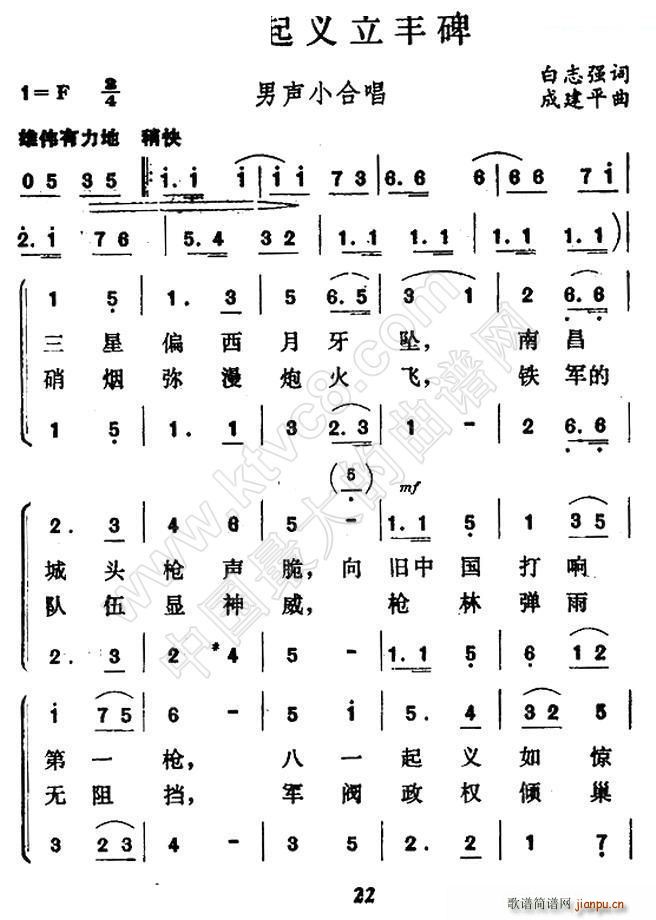 起义立丰碑
1=F 2/4 男声小合唱 白志强词
成建平曲
雄伟有力地 稍快
0 5 3 5 | 1. 1 1 | 1 1 7 3 | 6. 6 6 | 6 6 7 1 |
2. 1 7 6 | 5. 4 3 2 | 1. 1 1. 1 | 1. 1 1. 1 | 1 1. 1 ) |
1 5 | 1. 3 | 5 6. 5 | 3 1 | 2 6. 6 |
三星偏西月牙坠，南昌
硝烟弥漫炮火飞，铁军的
1 5 | 1. 1 | 3 2. 3 | 1 - | 2 6. 6 |
(5) mf
2. 3 | 4 6 | 5 - | 1. 1 5 | 1 3 5 |
城头枪声脆，向旧中国打响
队伍显神威，枪林弹雨
2. 3 | 2 #4 | 5 - | 1. 1 5 | 6 1 2 |
1 7 5 | 6 - | 5 1 | 5. 4 | 3 2 5 |
第一枪，八一起义如惊
无阻挡，军阀政权倾巢
3 2 3 | 4 - | 3 5 | 2. 2 | 1 7 |
22
www.ktvc8.com
中国最大的曲谱网
歌谱简谱网
jianpu.cn